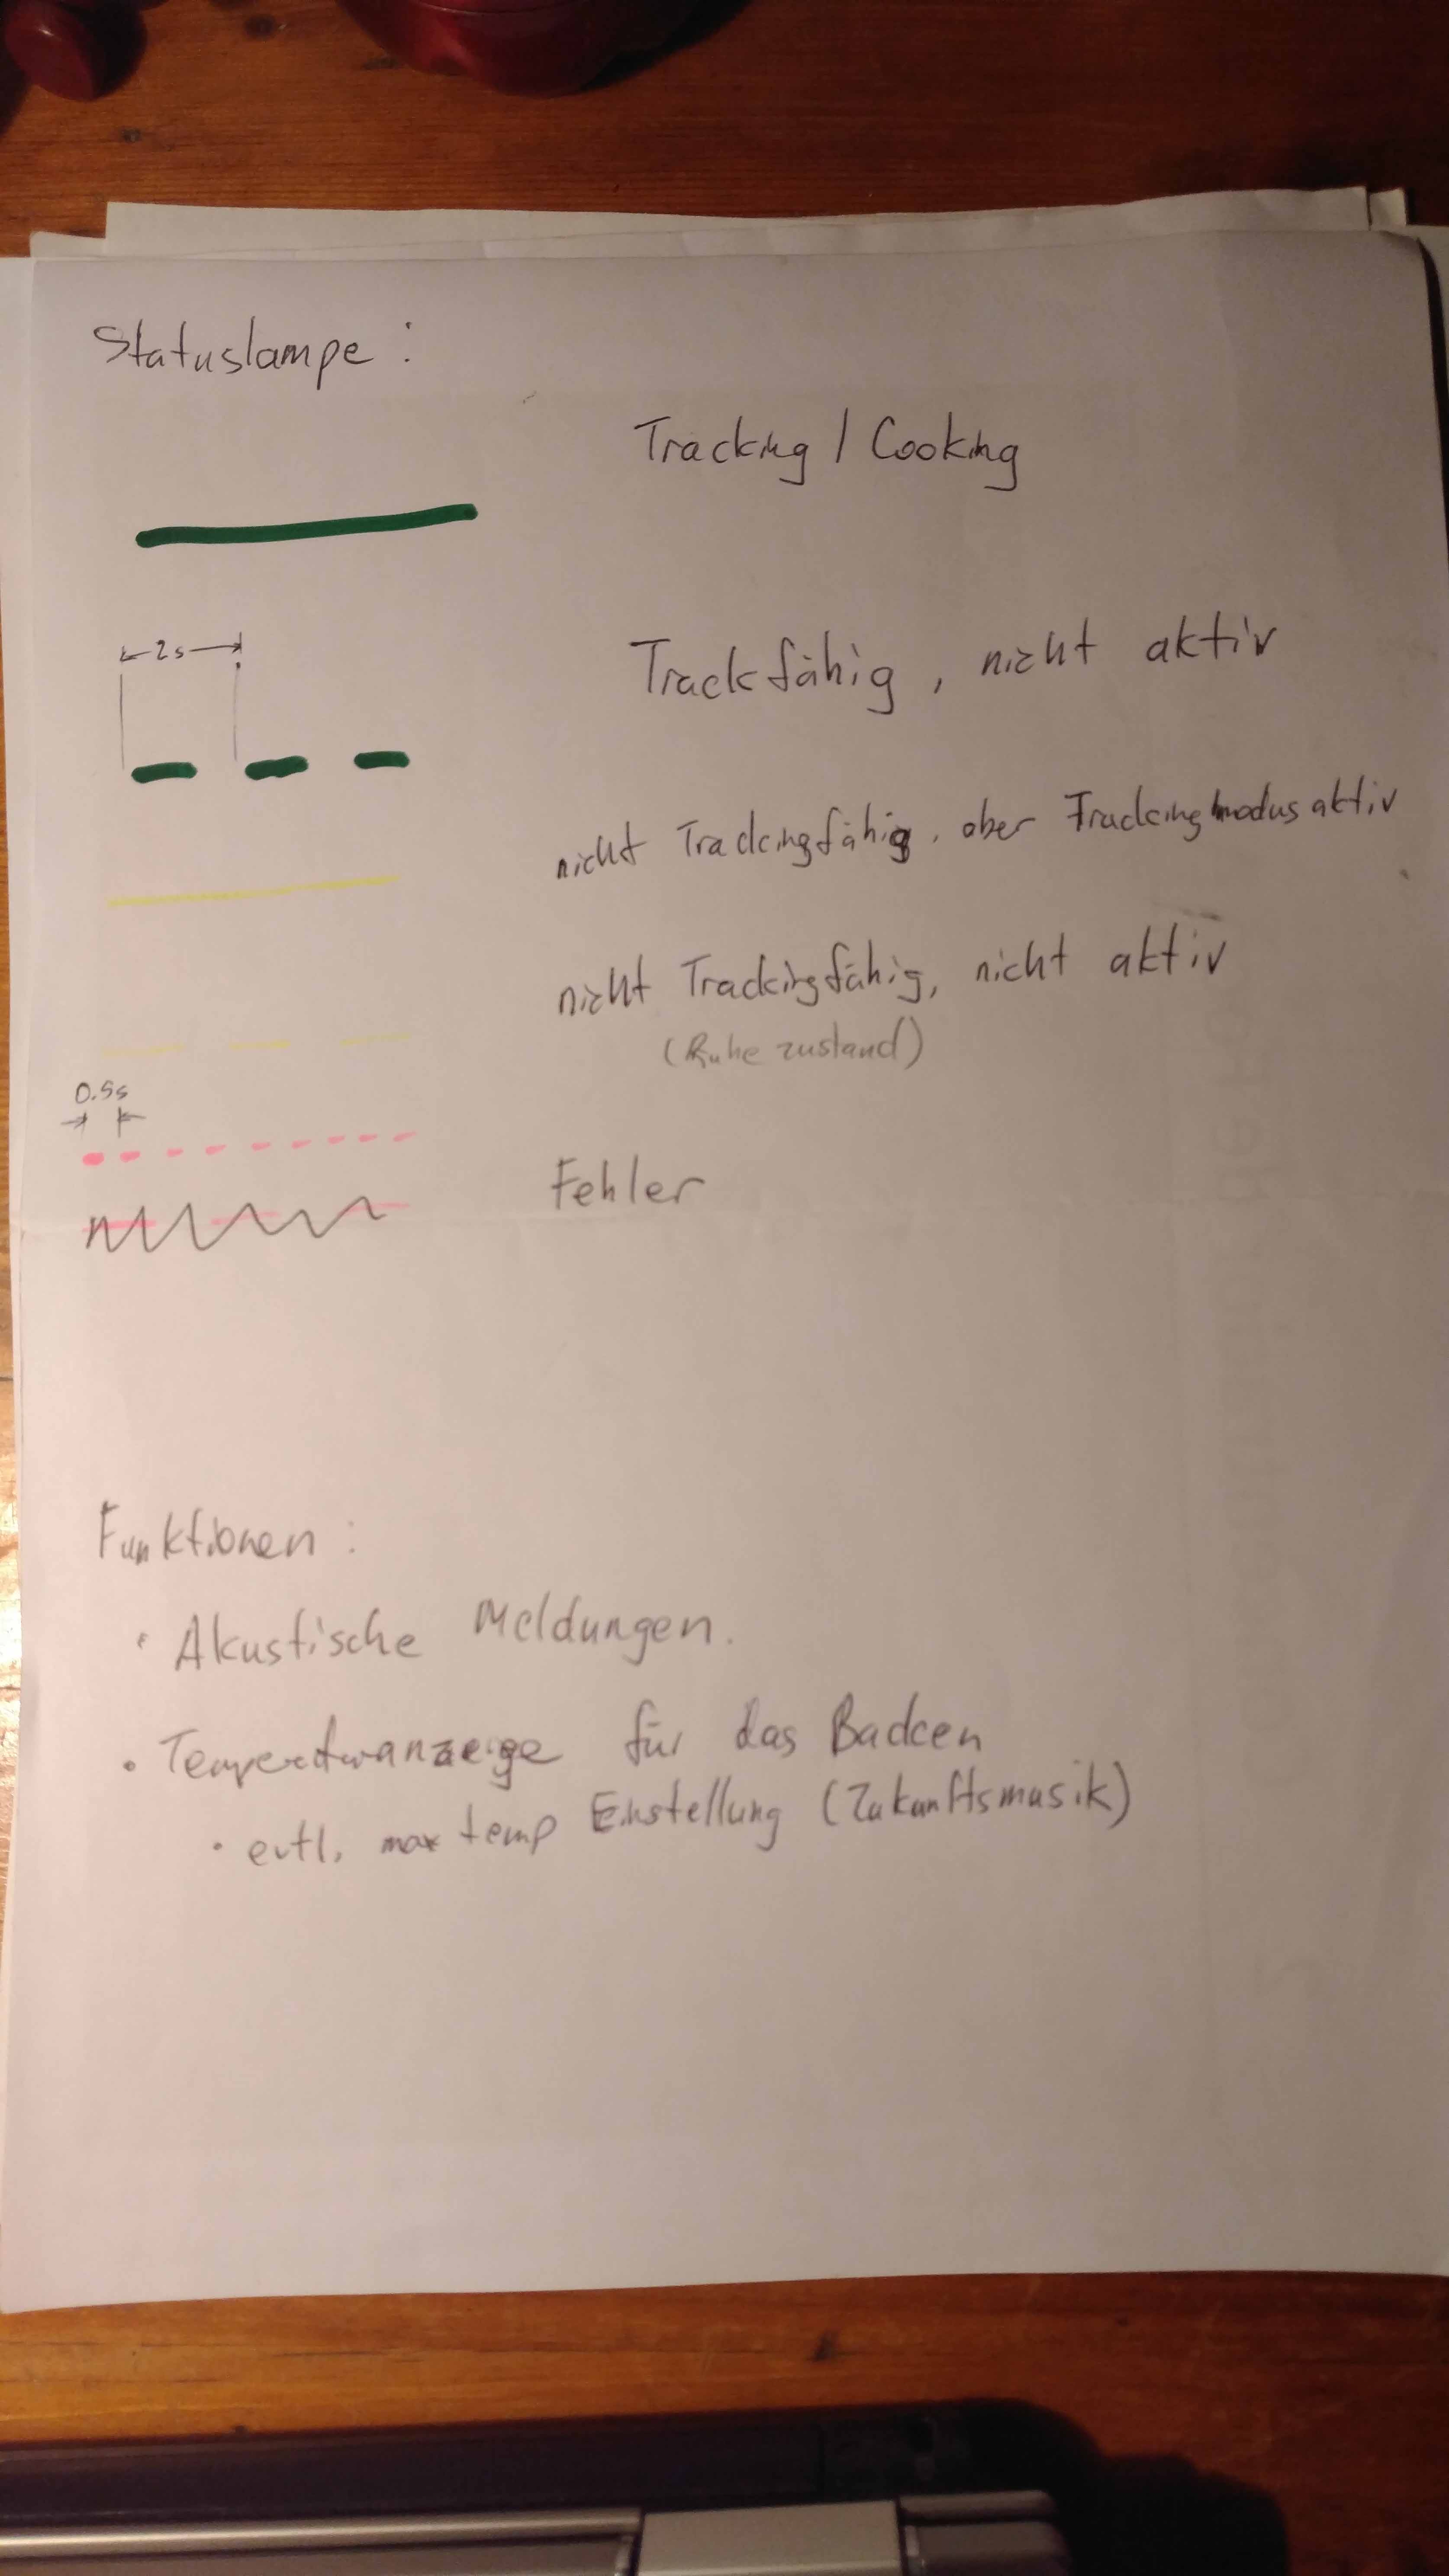 Statuslampe :
Tracking / Cooking
2s
Trackfähig, nicht aktiv
nicht Trackingfähig, aber Trackingmodus aktiv
nicht Trackingfähig, nicht aktiv
(Ruhezustand)
0.5s
Fehler
Funktionen :
• Akustische Meldungen.
• Temperaturanzeige für das Backen
• evtl. max temp Einstellung (Zukunftsmusik)